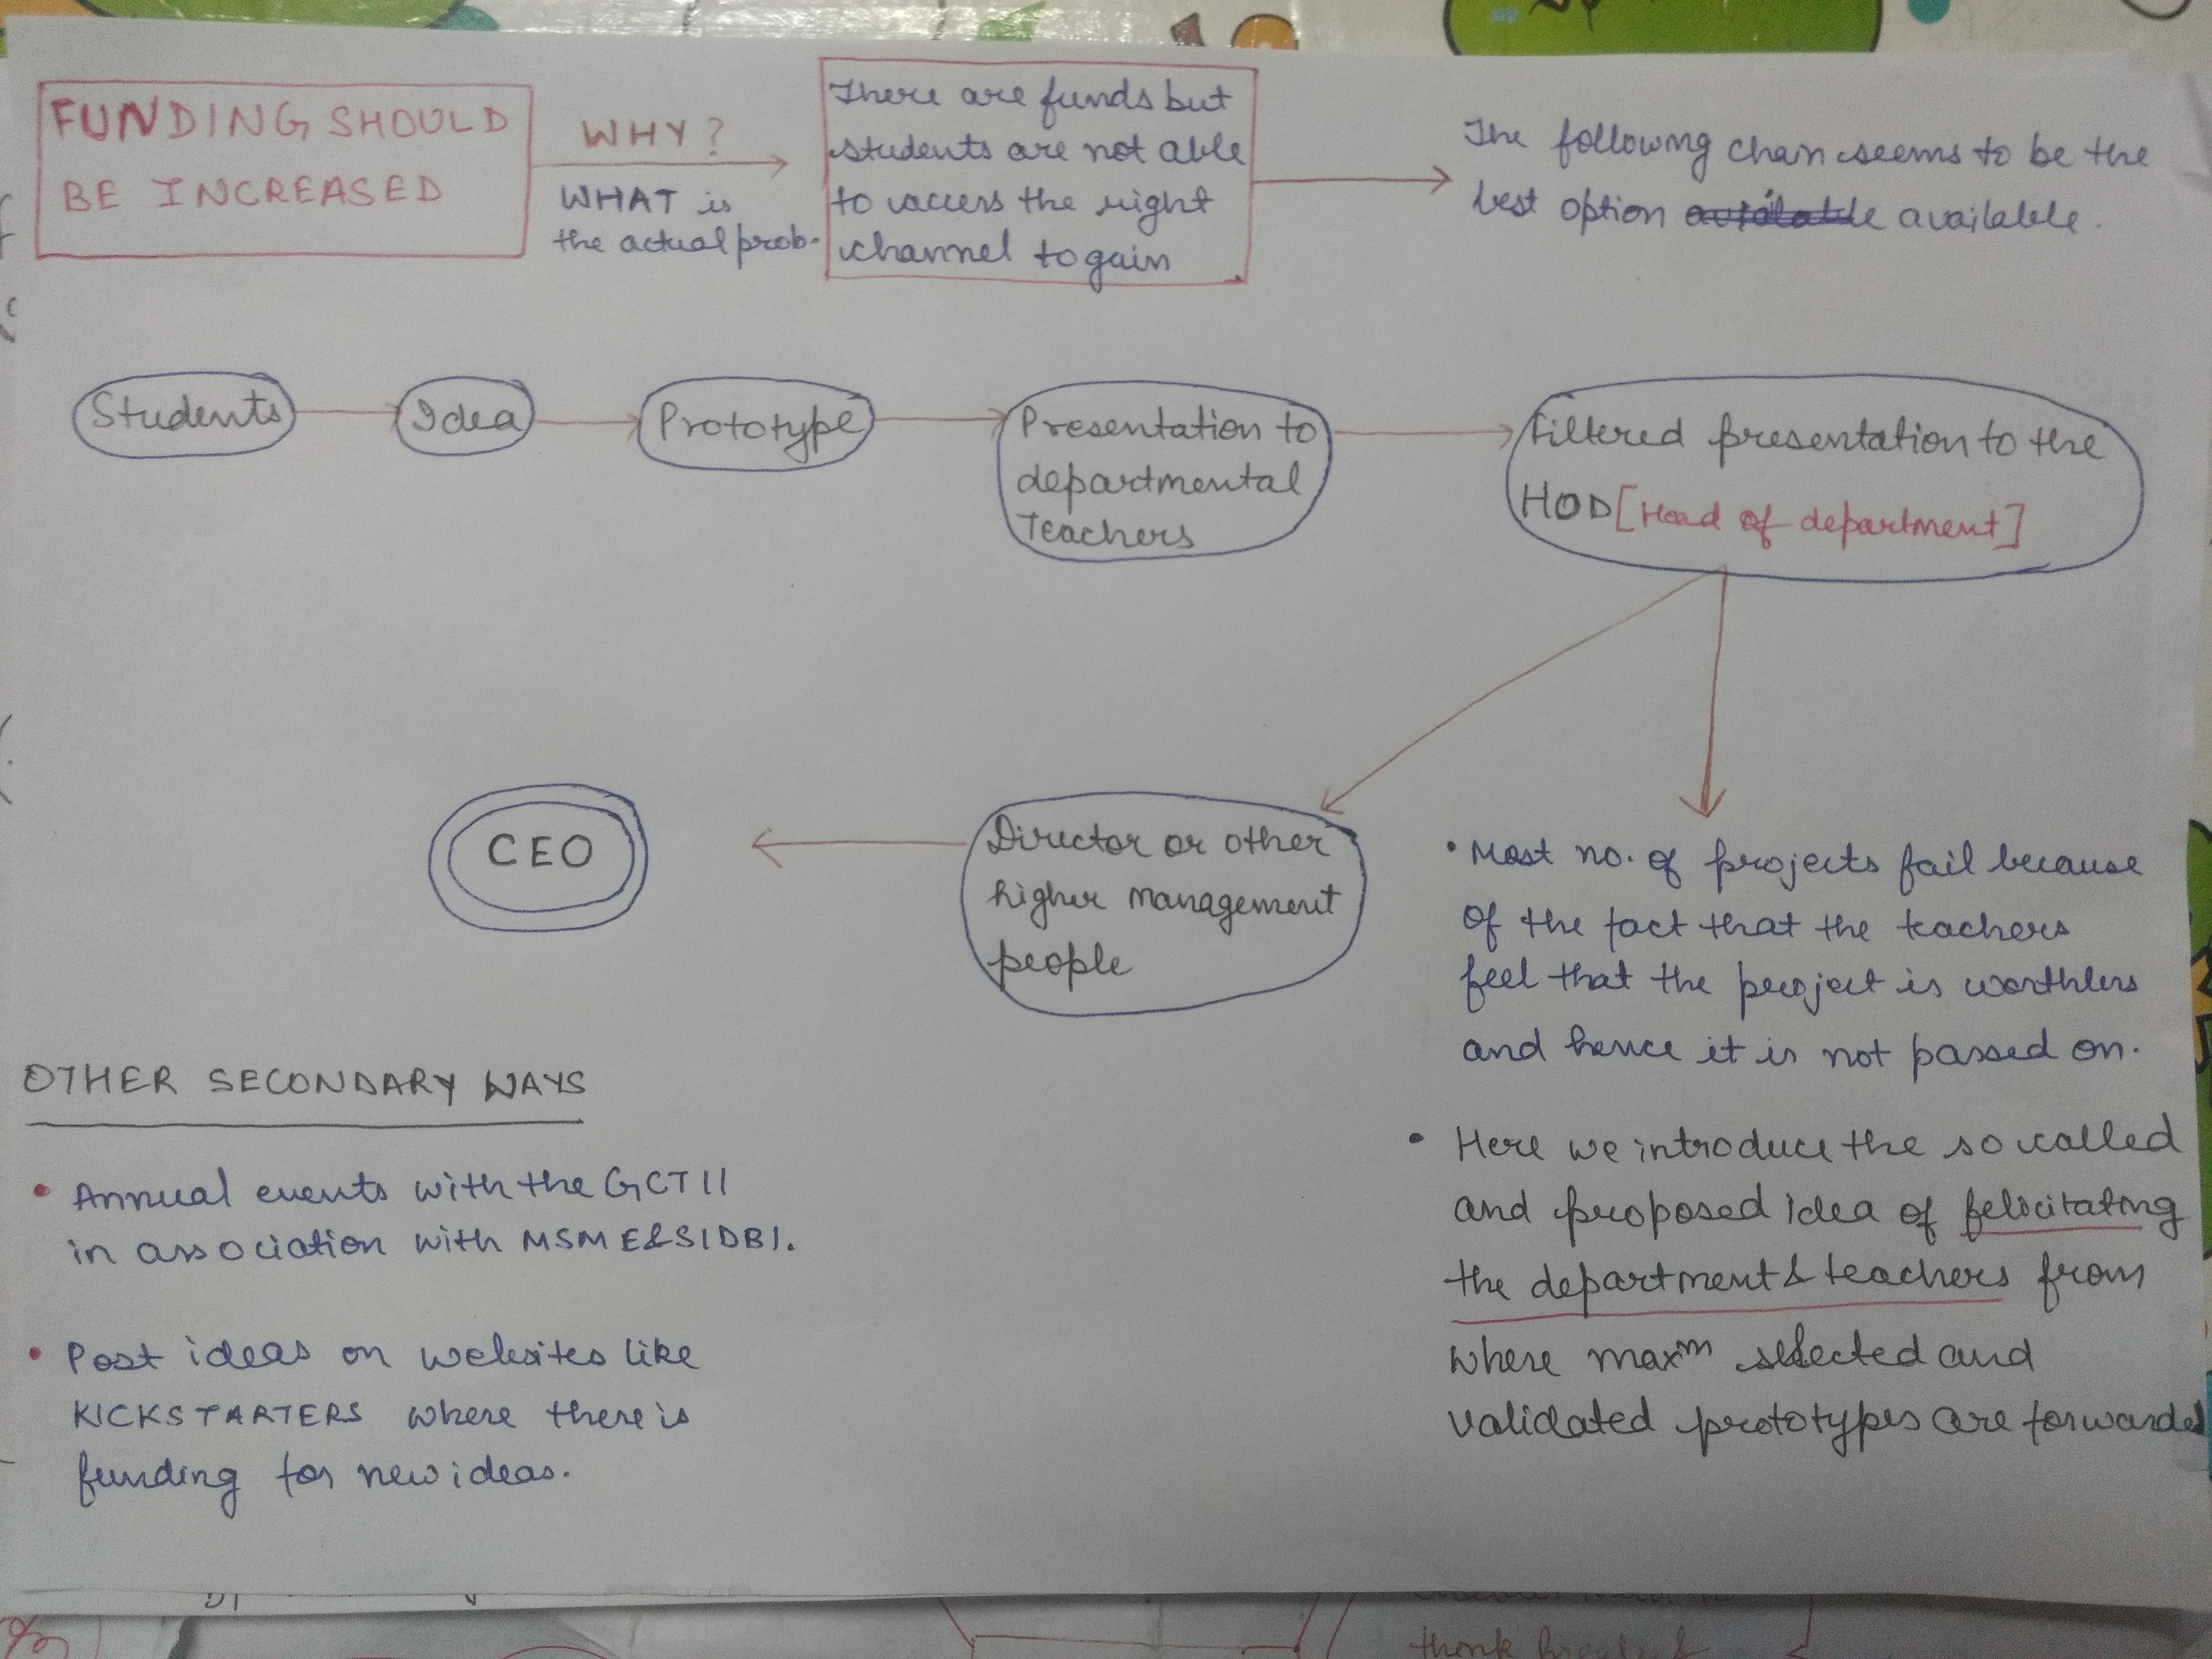 FUNDING SHOULD
BE INCREASED
WHY?
WHAT is
the actual prob-
There are funds but
students are not able
to access the right
channel to gain
The following chain seems to be the
best option available available.
Students
Idea
Prototype
Presentation to
departmental
Teachers
Filtered presentation to the
HOD [Head of department]
CEO
Director or other
higher management
people
• Most no. of projects fail because
of the fact that the teachers
feel that the project is worthless
and hence it is not passed on.
• Here we introduce the so called
and proposed idea of felicitating
the department & teachers from
where maxm selected and
validated prototypes are forwarded
OTHER SECONDARY WAYS
• Annual events with the GCTII
in association with MSME & SIDBI.
• Post ideas on websites like
KICKSTARTERS where there is
funding for new ideas.
think